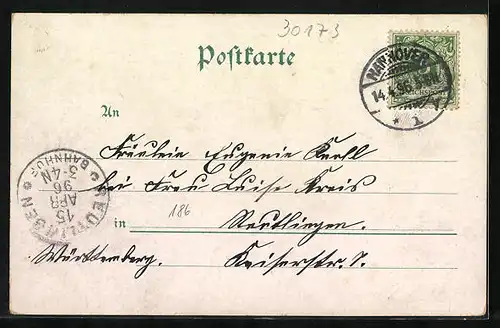 30173
Postkarte
HANNOVER
14.4.96
* 1
An
Fräulein Eugenie
bei Frau Luise Kreis
186
in Reutlingen
Württemberg. Kaiserstr. 7.
REUTLINGEN
15
APR
96
3-4N
BAHNHOF